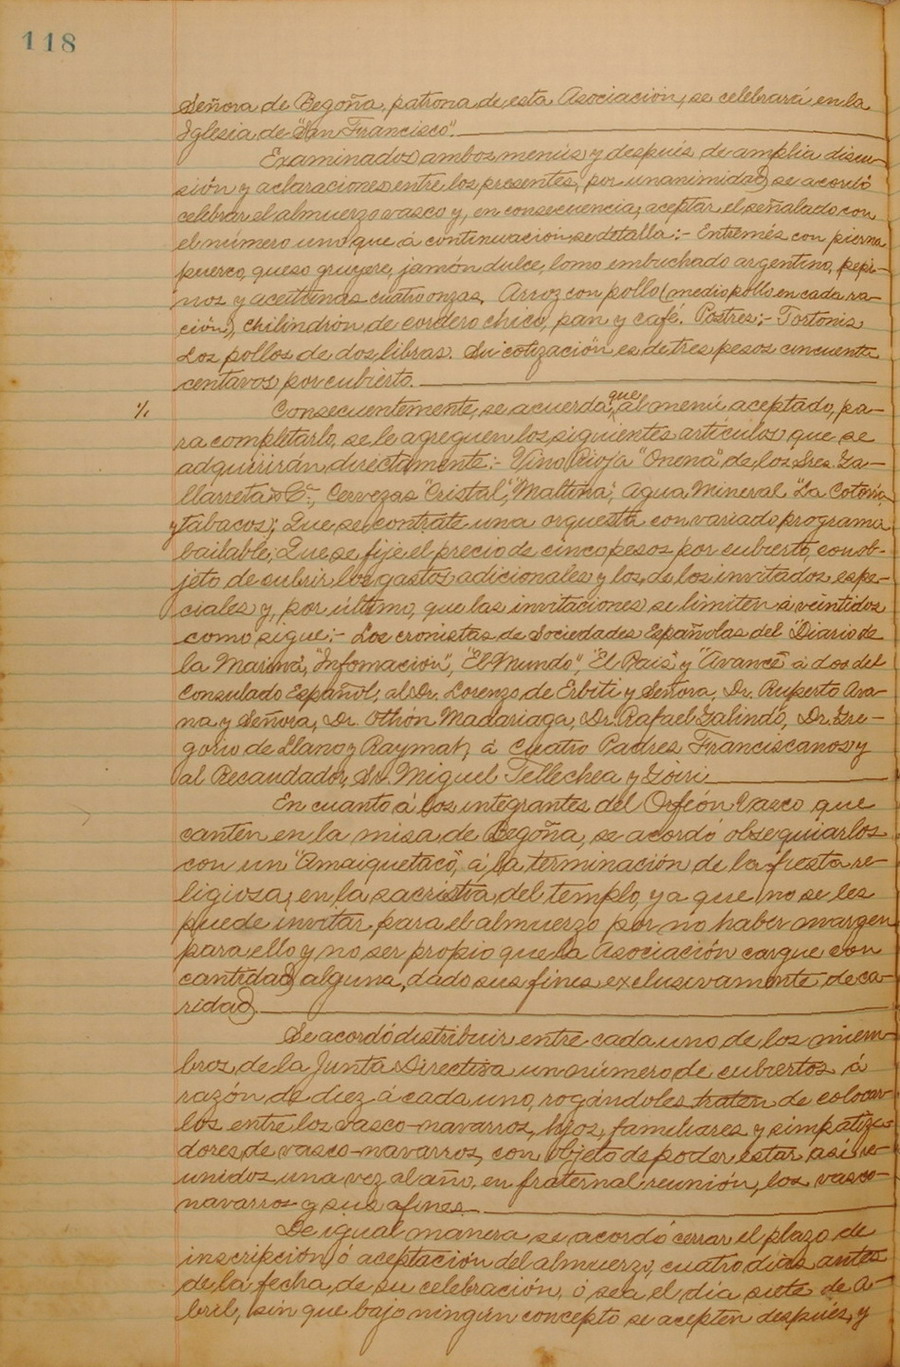 118
Señora de Begoña, patrona de esta Asociación, se celebrará en la
Iglesia de "San Francisco".
Examinados ambos menús y después de amplia discu-
sión y aclaraciones entre los presentes, por unanimidad, se acordó
celebrar el almuerzo vasco y, en consecuencia, aceptar el señalado con
el número uno que á continuación se detalla:- Entremés con pierna
puerco, queso gruyere, jamón dulce, lomo embuchado argentino, pepi-
nos y aceitunas cuatro onzas. Arroz con pollo (medio pollo en cada ra-
ción), chilindrón de cordero chico, pan y café. Postres:- Tortonis
Los pollos de dos libras. Su cotización es de tres pesos cincuenta
centavos por cubierto.
Consecuentemente, se acuerda, que al menú aceptado, pa-
ra completarlo, se le agreguen los siguientes artículos que se
adquirirán directamente:- Vino Rioja "Onena" de los Sres. Ga-
llarreta & Cª, Cervezas "Cristal", "Maltina", Agua Mineral "La Cotorra"
y tabacos; Que se contrate una orquesta con variado programa
bailable; Que se fije el precio de cinco pesos por cubierto, con ob-
jeto de cubrir los gastos adicionales y los de los invitados espe-
ciales y, por último, que las invitaciones se limiten á veintidos
como sigue:- Los cronistas de Sociedades Españolas del "Diario de
la Marina", "Infomación", "El Mundo", "El País" y "Avance" á dos del
Consulado Español, al Dr. Lorenzo de Erbiti y Señora, Dr. Ruperto Ara-
na y Señora, Dr. Othón Madariaga, Dr. Rafael Galindo, Dr. Gre-
gorio de Llano y Raymat, á Cuatro Padres Franciscanos y
al Recaudador, Sr. Miguel Tellechea y Goiri
En cuanto á los integrantes del Orfeón Vasco que
canten en la misa de Begoña, se acordó obsequiarlos
con un "Amaiquetaco", á la terminación de la fiesta re-
ligiosa, en la sacristia del templo, ya que no se les
puede invitar para el almuerzo por no haber margen
para ello y no ser propio que la Asociación cargue con
cantidad alguna, dado sus fines exclusivamente de ca-
ridad.
Se acordó distribuir entre cada uno de los miem-
bros de la Junta Directiva un número de cubiertos á
razón de diez á cada uno, rogándoles traten de colocar-
los entre los vasco-navarros, hijos, familiares y simpatiza-
dores de vasco-navarros, con objeto de poder estar así re-
unidos una vez al año, en fraternal reunión, los vasco-
navarros y sus afines.
De igual manera se acordó cerrar el plazo de
inscripción ó aceptación del almuerzo, cuatro días antes
de la fecha de su celebración, ó sea el día siete de A-
bril, sin que bajo ningún concepto se acepten después, y